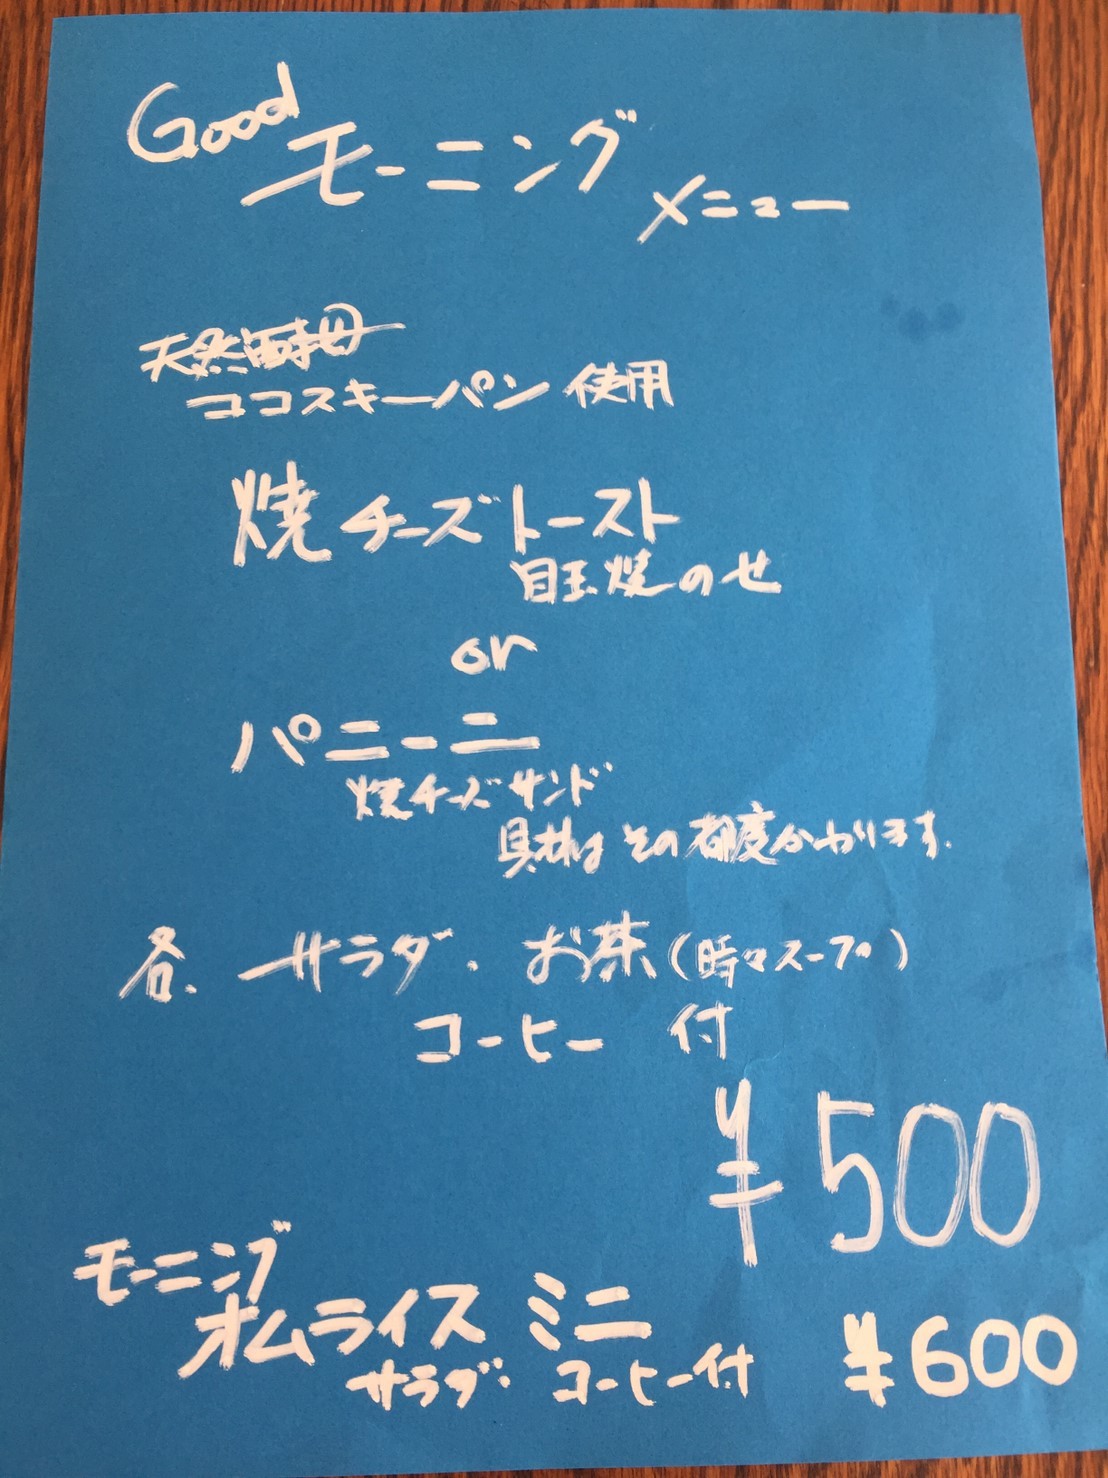 Good
モーニング
メニュー
天然酵母
ココスキーパン 使用
焼チーズトースト
目玉焼のせ
or
パニーニ
焼チーズサンド
具材は その都度かわります.
各. サラダ. お茶(時々スープ)
コーヒー 付
¥500
モーニング
オムライス ミニ
サラダ. コーヒー付
¥600